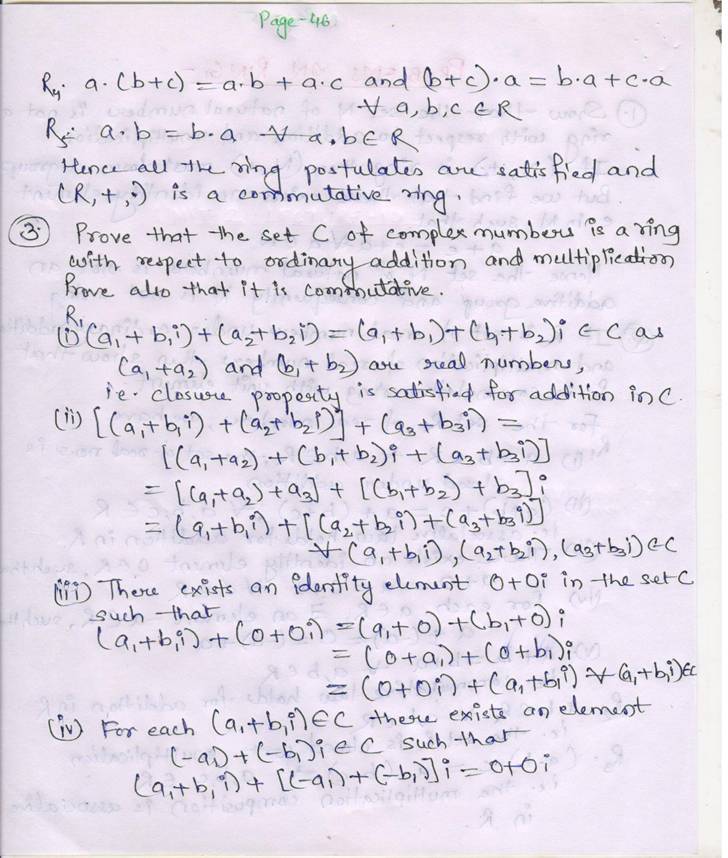 Page-46
R₄: a.(b+c) = a.b + a.c and (b+c).a = b.a+c.a
∀ a,b,c ∈R
R₅: a.b = b.a ∀ a,b∈R
Hence all the ring postulates are satisfied and
(R,+,.) is a commutative ring.
③ Prove that the set C of complex numbers is a ring
with respect to ordinary addition and multiplication
Prove also that it is commutative.
R₁
(i) (a₁+b₁i)+(a₂+b₂i) = (a₁+b₁)+(b₁+b₂)i ∈ C as
(a₁+a₂) and (b₁+b₂) are real numbers,
ie. closure property is satisfied for addition in C.
(ii) [(a₁+b₁i)+(a₂+b₂i)] + (a₃+b₃i) =
[(a₁+a₂)+(b₁+b₂)i+(a₃+b₃i)]
= [(a₁+a₂)+a₃] + [(b₁+b₂)+b₃]i
= (a₁+b₁i)+[(a₂+b₂i)+(a₃+b₃i)]
∀ (a₁+b₁i),(a₂+b₂i),(a₃+b₃i)∈C
(iii) There exists an identity element 0+0i in the set C
such that
(a₁+b₁i)+(0+0i) = (a₁+0)+(b₁+0)i
= (0+a₁)+(0+b₁)i
= (0+0i)+(a₁+b₁i) ∀ (a₁+b₁i)∈C
(iv) For each (a₁+b₁i)∈C there exists an element
(-a₁)+(-b₁)i∈C such that
(a₁+b₁i)+[(-a₁)+(-b₁)]i = 0+0i